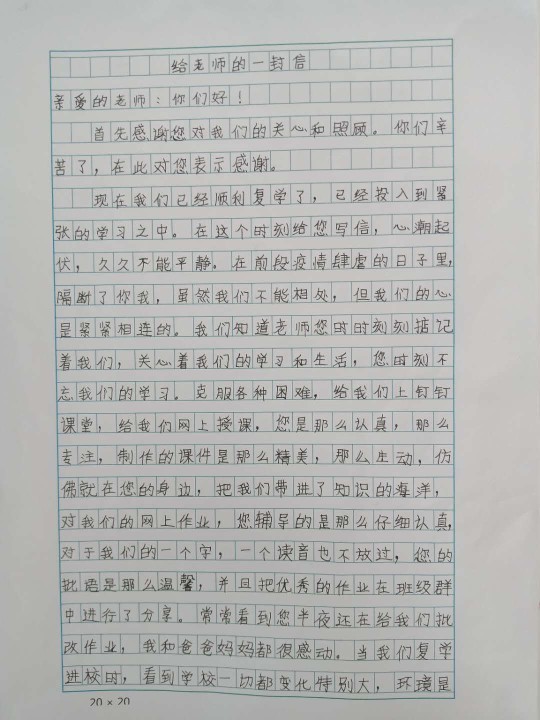 给老师的一封信
亲爱的老师：你们好！
首先感谢您对我们的关心和照顾。你们辛
苦了，在此对您表示感谢。
现在我们已经顺利复学了，已经投入到紧
张的学习之中。在这个时刻给您写信，心潮起
伏，久久不能平静。在前段疫情肆虐的日子里，
隔断了你我，虽然我们不能相处，但我们的心
是紧紧相连的。我们知道老师您时时刻刻掂记
着我们，关心着我们的学习和生活，您时刻不
忘我们的学习。克服各种困难，给我们上钉钉
课堂，给我们网上授课，您是那么认真，那么
专注，制作的课件是那么精美，那么生动，仿
佛就在您的身边，把我们带进了知识的海洋，
对我们的网上作业，您辅导的是那么仔细认真，
对于我们的一个字，一个读音也不放过，您的
批语是那么温馨，并且把优秀的作业在班级群
中进行了分享。常常看到您半夜还在给我们批
改作业，我和爸爸妈妈都很感动。当我们复学
进校时，看到学校一切都变化特别大，环境是
20×20